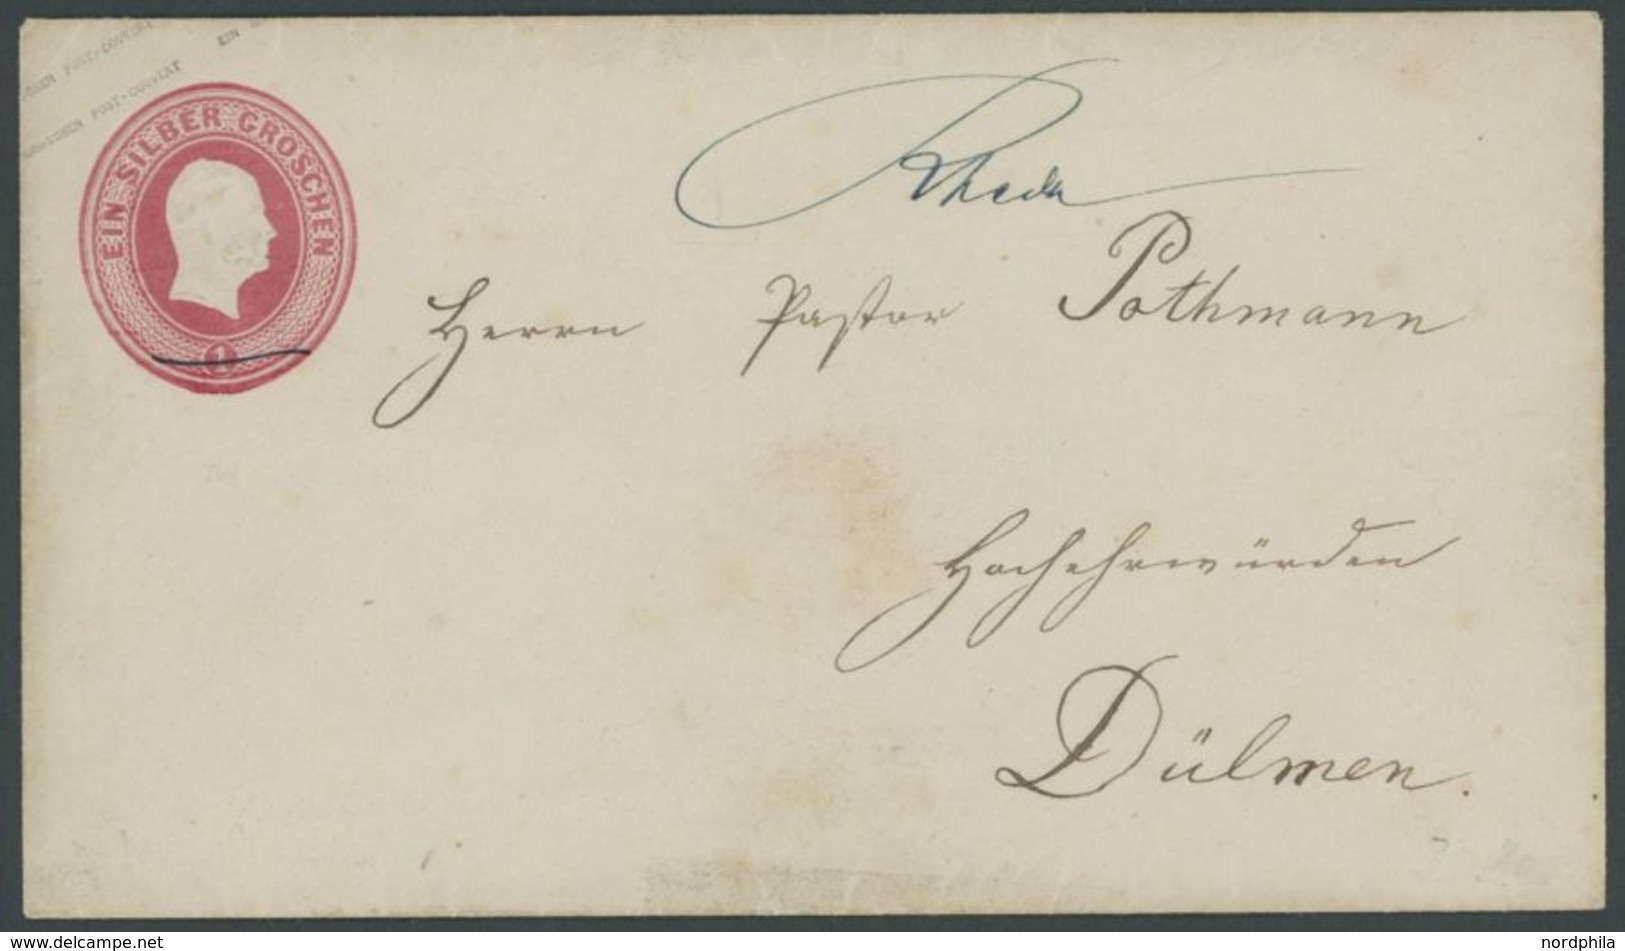 POST-COUVERT EIN
SCHEN POST-COUVERT
EIN SILBER GROSCHEN
1
Rheda
Herrn Pastor Pothmann
Hochehrwürden
Dülmen.
www.delcampe.net
nordphila